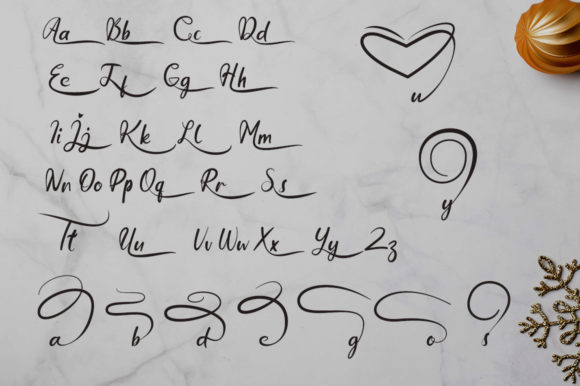 Aa Bb Cc Dd
Ee Ff Gg Hh
Ii Jj Kk Ll Mm
Nn Oo Pp Qq Rr Ss
Tt Uu Vv Ww Xx Yy Zz
u
y
a b d e g o s